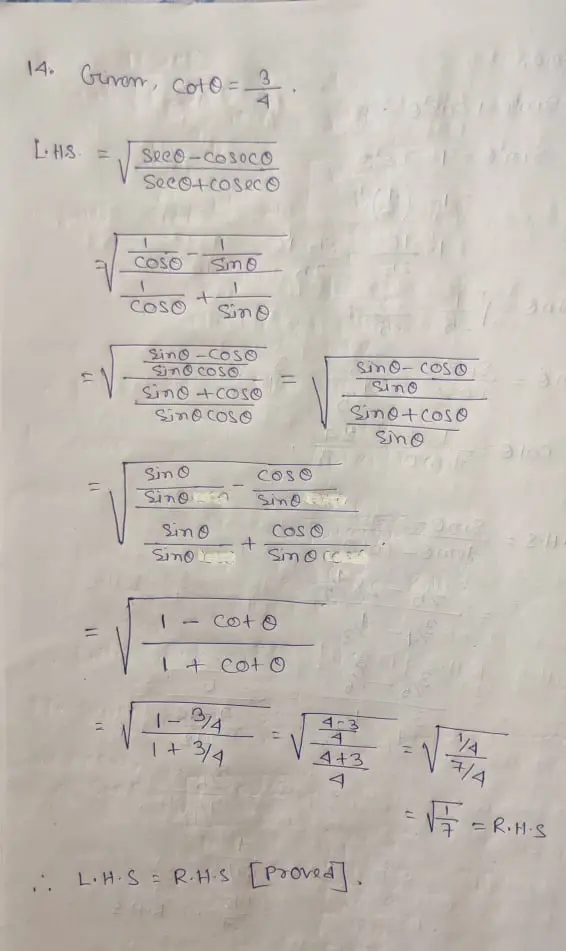 14. Given, cotθ = 3/4 .
L.HS. = √((secθ-cosecθ)/(secθ+cosecθ))
= √((1/cosθ - 1/sinθ)/(1/cosθ + 1/sinθ))
= √(((sinθ-cosθ)/(sinθcosθ))/((sinθ+cosθ)/(sinθcosθ))) = √(((sinθ-cosθ)/sinθ)/((sinθ+cosθ)/sinθ))
= √((sinθ/sinθ - cosθ/sinθ)/(sinθ/sinθ + cosθ/sinθ)) .
= √((1 - cotθ)/(1 + cotθ))
= √((1-3/4)/(1+3/4)) = √(((4-3)/4)/((4+3)/4)) = √((1/4)/(7/4))
= √(1/7) = R.H.S
∴ L.H.S = R.H.S [Proved].